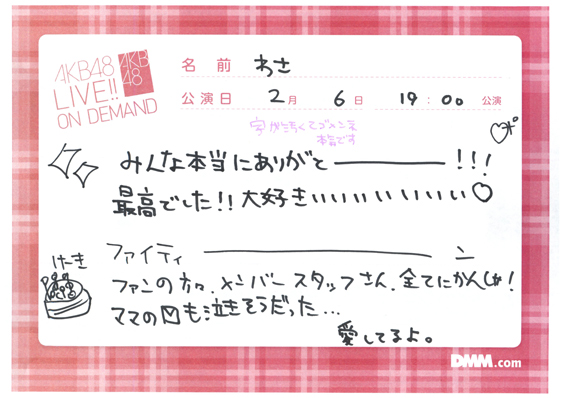 AKB48
LIVE!!
ON DEMAND
AKB
48
名前 わさ
公演日 2月 6日 19:00 公演
字がきたなくてゴメンネ
本当です
みんな本当にありがと――――!!!
最高でした!!大好きいいいいいいい♡
ファイティ――――――ン
けーき
ファンの方々、メンバー スタッフさん、全てにかんしゃ!
ママの図も泣きそうだった...
愛してるよ。
DMM.com